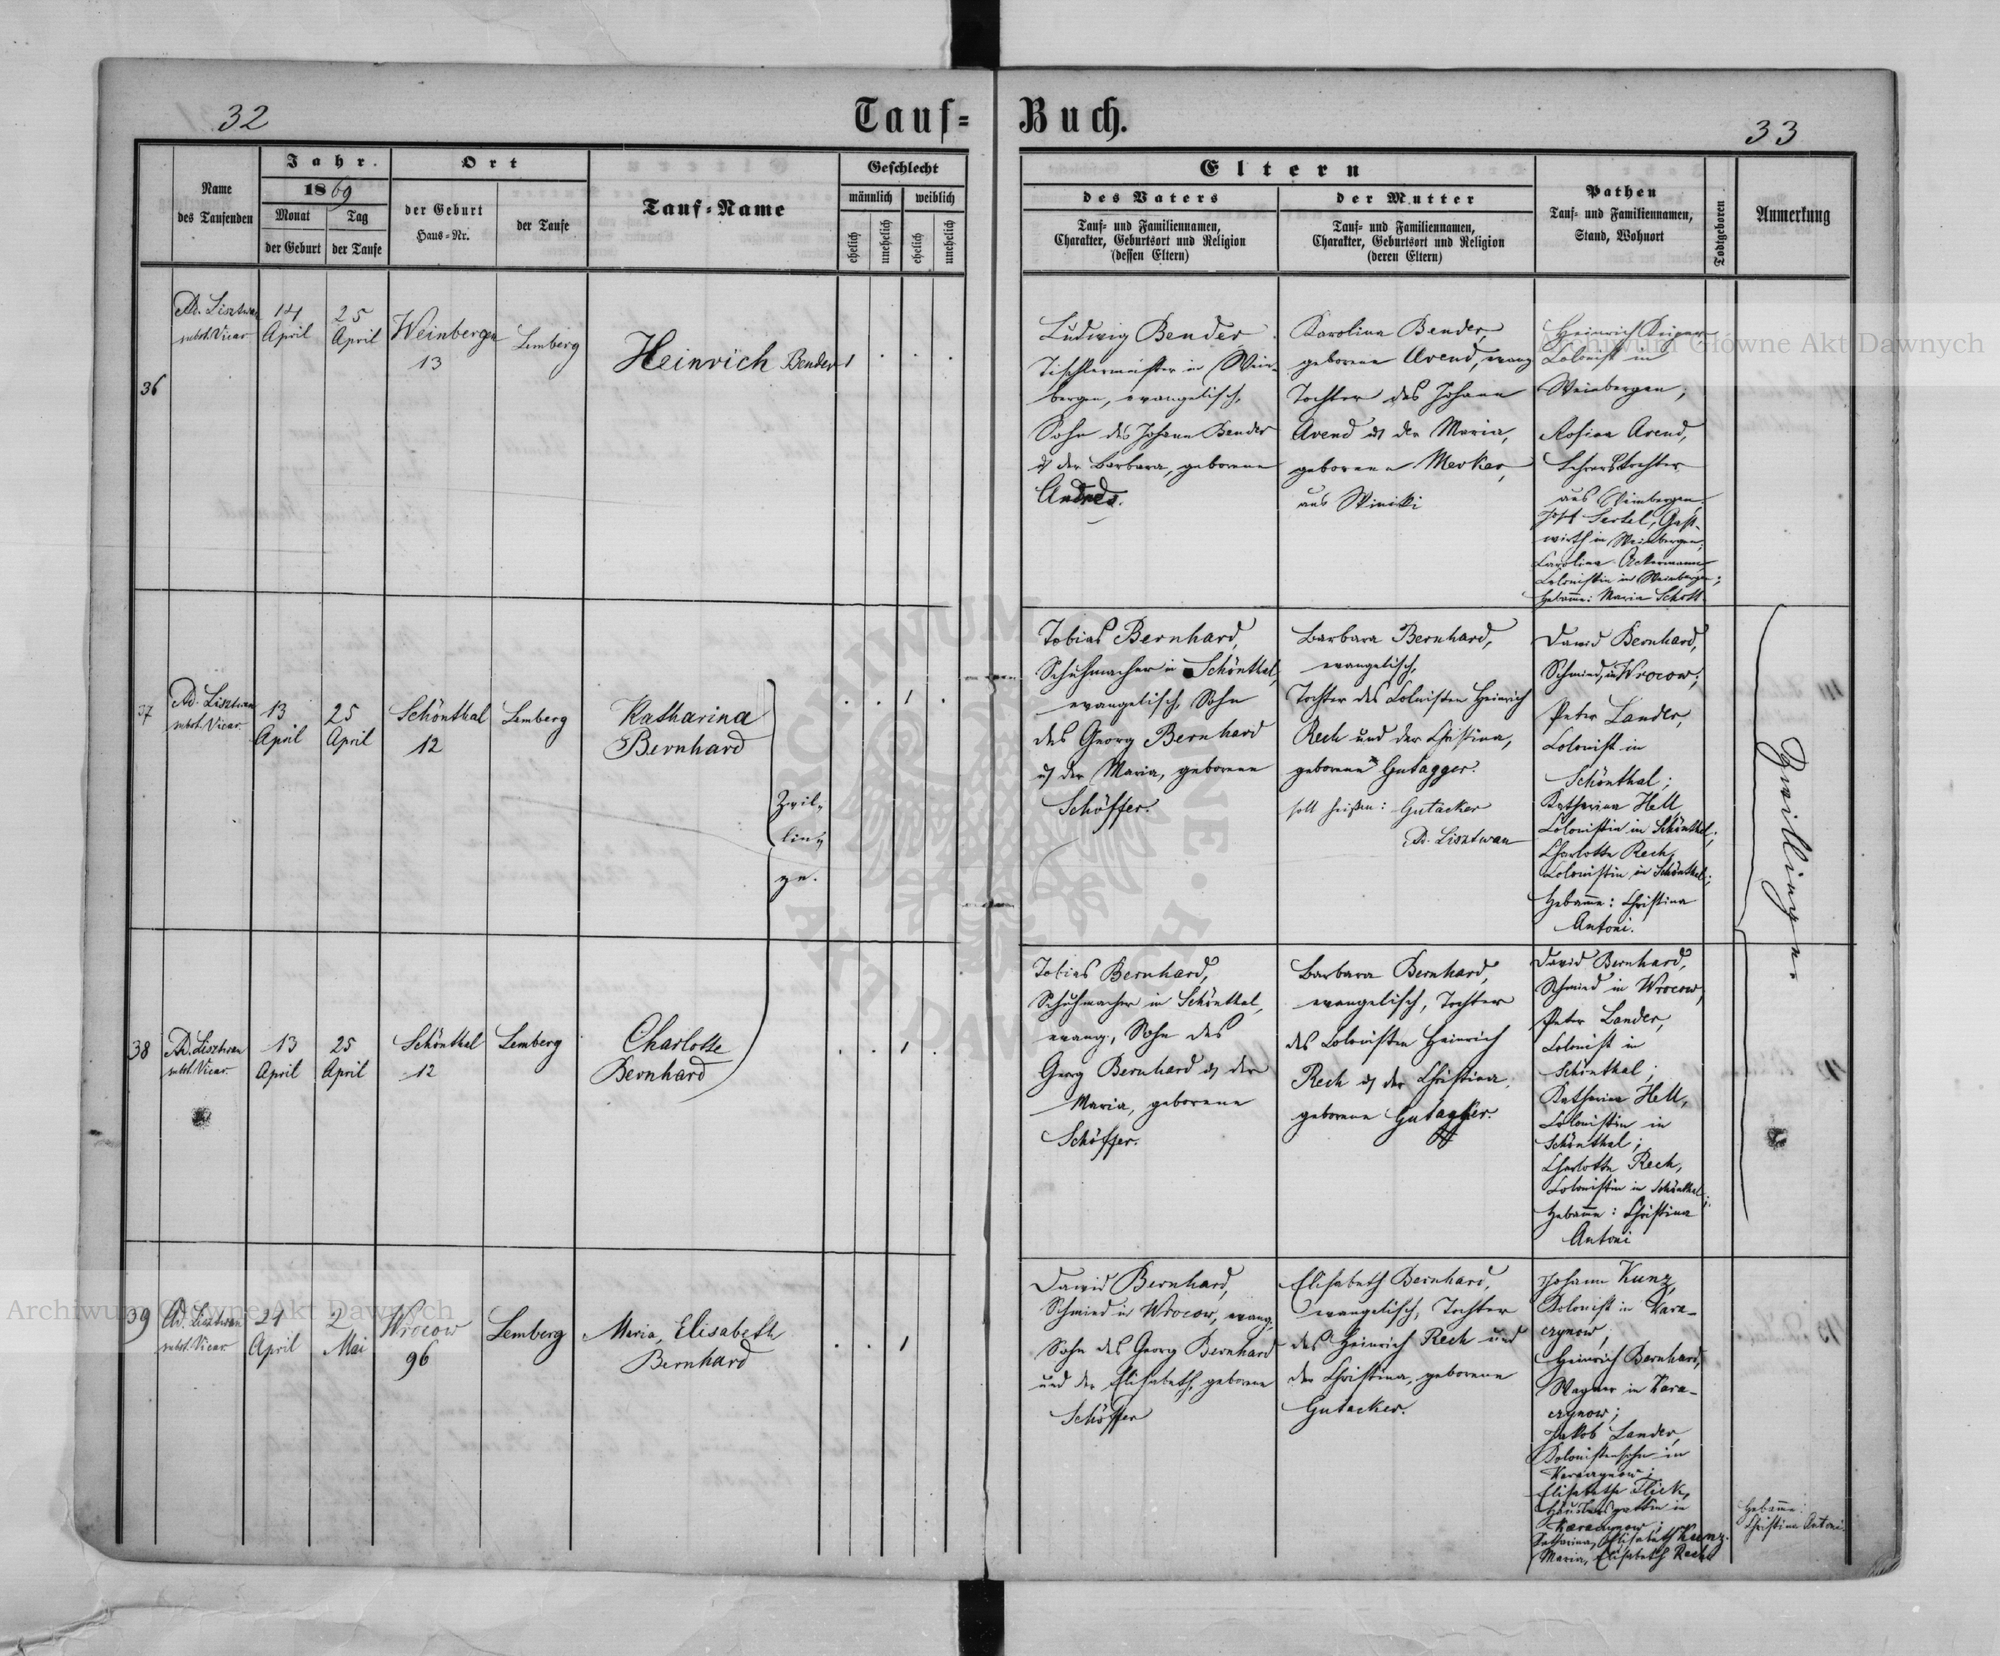 32
Tauf=
Buch.
33
Name
des Taufenden
Jahr.
1869
Monat
Tag
der Geburt
der Taufe
Ort
der Geburt
Haus=Nr.
der Taufe
Tauf=Name
Geschlecht
männlich
weiblich
ehelich
unehelich
ehelich
unehelich
Eltern
des Vaters
Tauf= und Familiennamen,
Charakter, Geburtsort und Religion
(dessen Eltern)
der Mutter
Tauf= und Familiennamen,
Charakter, Geburtsort und Religion
(deren Eltern)
Pathen
Tauf= und Familiennamen,
Stand, Wohnort
Todtgeboren
Anmerkung
36
Ad. Lisztwan
subst. Vicar
14
April
25
April
Weinbergen
13
Lemberg
Heinrich Bender
1
Ludwig Bender
Tischlermeister in Wein-
bergen, evangelisch,
Sohn des Johann Bender
u der Barbara, geborene
Andres.
Karolina Bender,
geborene Arend, evang
Tochter des Johann
Arend u der Maria,
geborene Merker,
aus Winiki
Heinrich
Kolonist in
Weinbergen;
Rosina Arend,
Lehrerstochter
aus Weinbergen
Josef Sertel, Gast-
wirth in Weinbergen;
Carolina Ackermann,
Colonistin in Weinbergen;
Hebamme: Maria Schott.
37
Ad. Lisztwan
subst. Vicar.
13
April
25
April
Schönthal
12
Lemberg
Katharina
Bernhard
Zwil-
lin-
ge.
1
Tobias Bernhard,
Schuhmacher in Schönthal,
evangelisch, Sohn
des Georg Bernhard
u der Maria, geborene
Schöffer.
Barbara Bernhard,
evangelisch,
Tochter des Colonisten Heinrich
Rech und der Christina,
geborene Gutagger.
soll heißen: Gutacker
Ad. Lisztwan
David Bernhard,
Schmied, in Wrocow;
Peter Lander,
Colonist in
Schönthal;
Katharina Hell
Colonistin in Schönthal;
Charlotte Rech,
Colonistin in Schönthal;
Hebamme: Christina
Antoni.
Zwillinge
38
Ad. Lisztwan
subst. Vicar.
13
April
25
April
Schönthal
12
Lemberg
Charlotte
Bernhard
1
Tobias Bernhard,
Schuhmacher in Schönthal,
evang., Sohn des
Georg Bernhard u der
Maria, geborene
Schöffer.
Barbara Bernhard,
evangelisch, Tochter
des Colonisten Heinrich
Rech u der Christina,
geborene
David Bernhard,
Schmied in Wrocow,
Peter Lander,
Colonist in
Schönthal;
Katharina Hell,
Colonistin in
Schönthal;
Charlotte Rech,
Colonistin in Schönthal;
Hebamme: Christina
Antoni
39
Ad. Lisztwan
subst. Vicar.
24
April
2
Mai
Wrocow
96
Lemberg
Maria, Elisabeth
Bernhard
1
David Bernhard,
Schmied in Wrocow, evang.
Sohn des Georg Bernhard
und der Elisabeth, geborene
Schöffer
Elisabeth Bernhard,
evangelisch, Tochter
des Heinrich Rech und
der Christina, geborene
Gutacker.
Johann Kunz,
Kolonist in Kara-
czynow;
Heinrich Bernhard,
Wagner in Kara-
czynow;
Jakob Lander,
Kolonistensohn in
Karaczynow;
Elisabeth Flick,
in
Karaczynow;
Katharina, Elisabeth Kunz.
Maria, Elisabeth Rech
Hebamme:
Christina Antoni.
Archiwum Główne Akt Dawnych
Archiwum Główne Akt Dawnych
ARCHIWUM GŁÓWNE AKT DAWNYCH